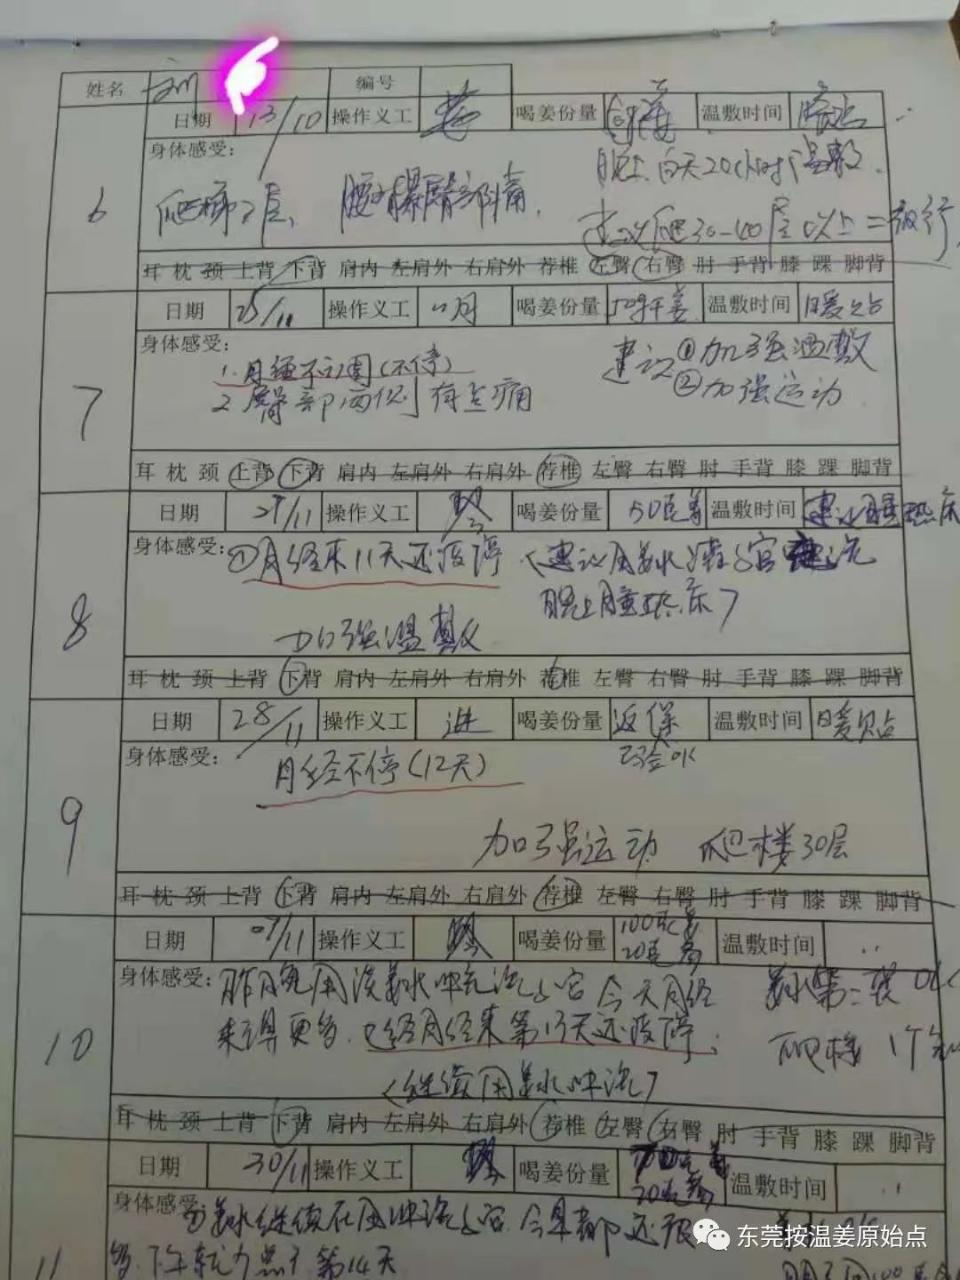 姓名 编号
日期 13/10 操作义工 喝姜份量 温敷时间
身体感受：
晚上 白天20小时 温敷
6
爬楼 层、 腰 臀部 痛、
建议爬30-40层以上 = 放行
耳 枕 颈 上背 下背 肩内 左肩外 右肩外 荐椎 左臀 右臀 肘 手背 膝 踝 脚背
日期 25/11 操作义工 喝姜份量 干姜 温敷时间 暖贴
身体感受：
1. 月经不 (不停) 建议①加强温敷
7 2 臀部 有点痛 ②加强运动
耳 枕 颈 上背 下背 肩内 左肩外 右肩外 荐椎 左臀 右臀 肘 手背 膝 踝 脚背
日期 27/11 操作义工 喝姜份量 50克姜 温敷时间 建议睡热床
身体感受：
①月经来11天还没停 (建议用姜水 子宫 洗
8 晚上睡热床)
加强温敷
耳 枕 颈 上背 下背 肩内 左肩外 右肩外 荐椎 左臀 右臀 肘 手背 膝 踝 脚背
日期 28/11 操作义工 进 喝姜份量 返保 温敷时间 暖贴
身体感受： 验OK
月经不停(12天)
9
加强运动 爬楼30层
耳 枕 颈 上背 下背 肩内 左肩外 右肩外 荐椎 左臀 右臀 肘 手背 膝 踝 脚背
日期 /11 操作义工 喝姜份量 100克姜 20克 温敷时间
身体感受：昨晚用浓姜水冲洗子宫 今天月经 姜水第二袋 OK
10 来得更多，已经月经来第13天还没停， 爬楼1个
<继续用姜水冲洗>
耳 枕 颈 上背 下背 肩内 左肩外 右肩外 荐椎 左臀 右臀 肘 手背 膝 踝 脚背
日期 30/11 操作义工 喝姜份量 20克 温敷时间
身体感受：
姜水继续在用冲洗子宫、今早都还很
多、下午 第14天
11
东莞按温姜原始点